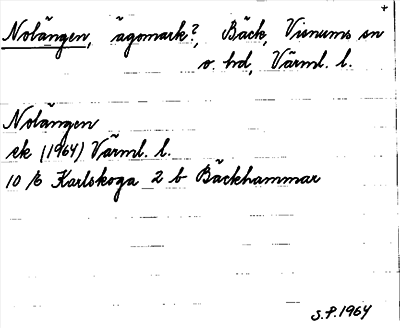 +
Nolängen, ägomark?, Bäck, Visnums sn
o. hd, Värml. l.
Nolängen
ek (1964) Värml. l.
10 /6 Karlskoga 2 b Bäckhammar
S.P. 1964